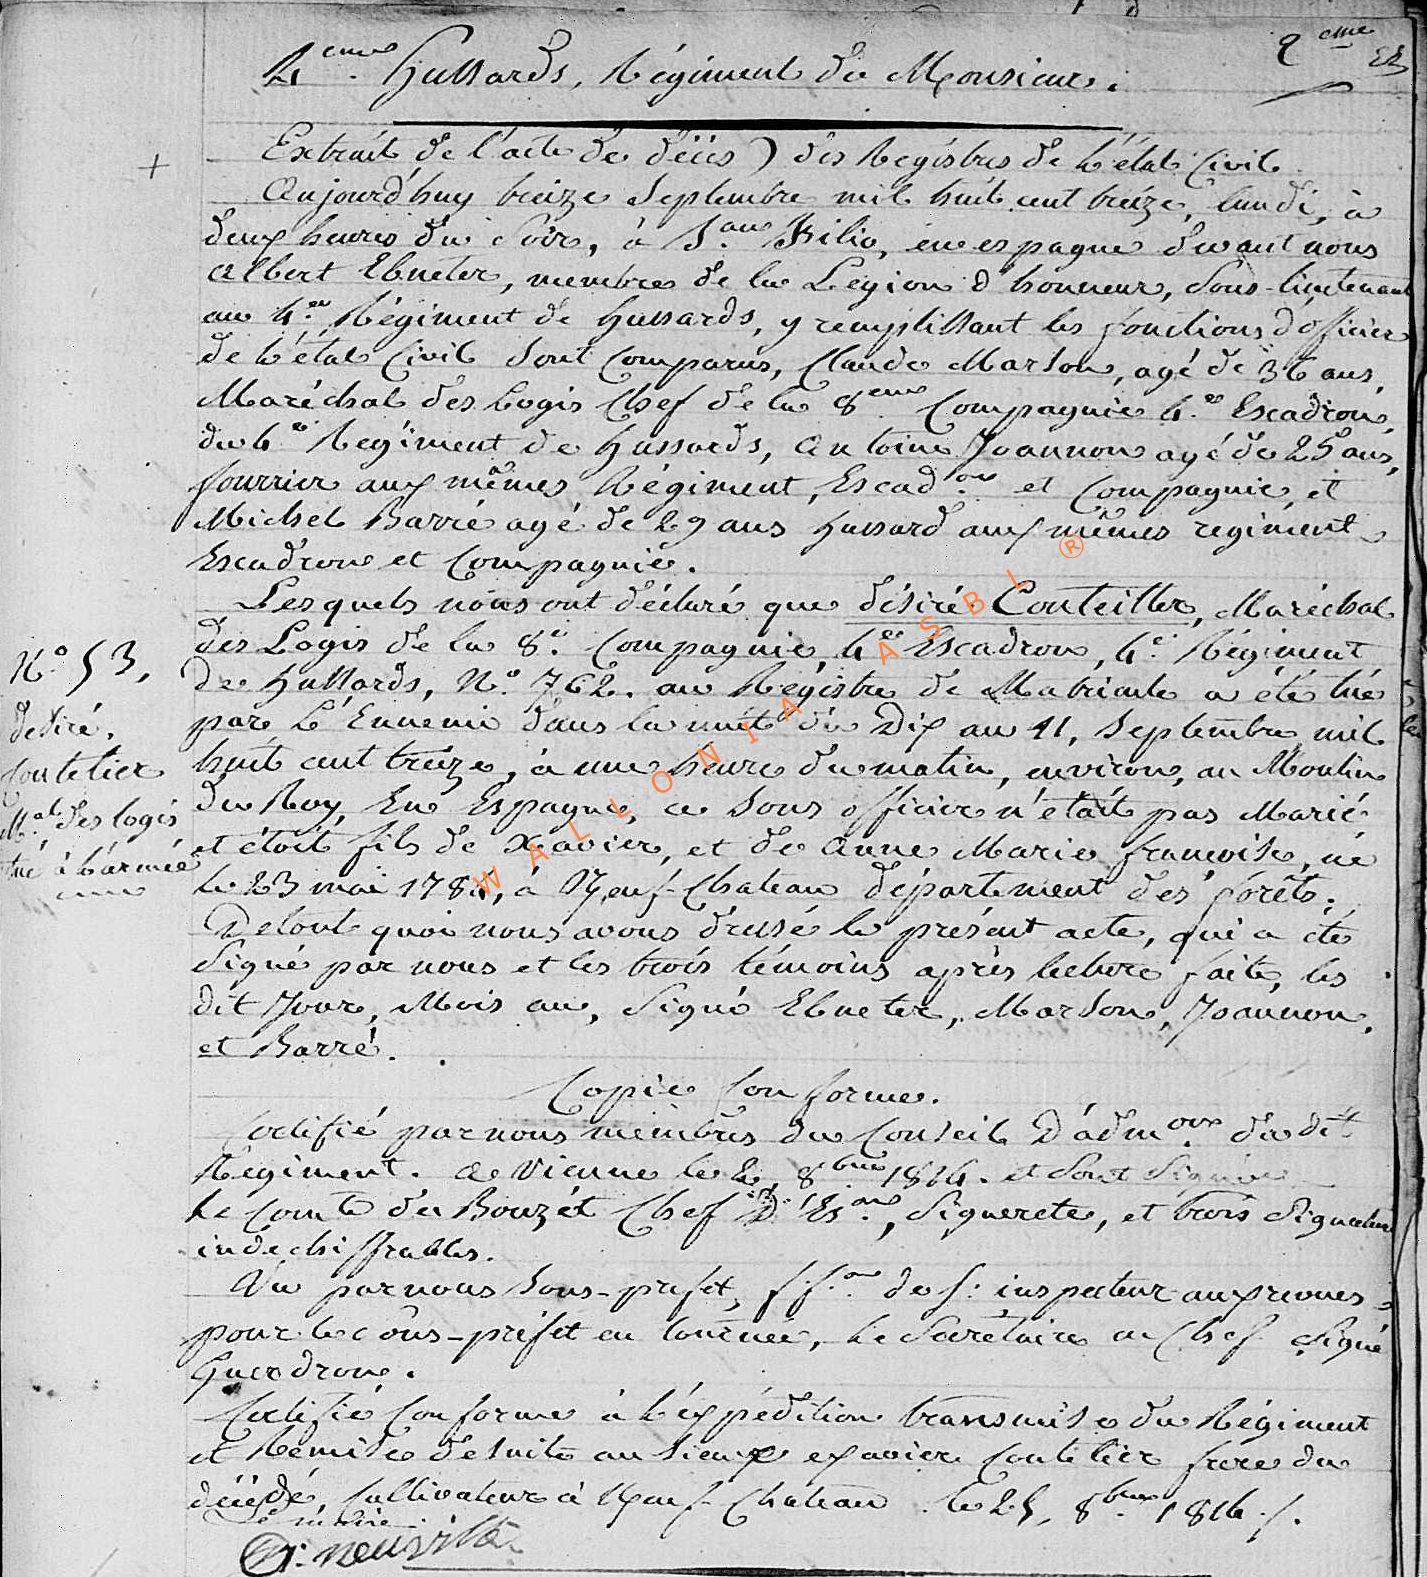 4eme. hussards, Régiment de Monsieur.
Extrait de l'acte de décès des Registres de l'état Civil
Aujourd'huy treize Septembre mil huit cent treize, lundi, à
deux heures du Soir, à San en espagne devant nous
Albert Ebneter, membre de la Légion d'honneur, Sous-lieutenant
au 4e. Régiment de hussards, y remplissant les fonctions d'officier
de l'état Civil Sont Comparus, Claude Marson, agé de 36 ans,
Maréchal des Logis Chef de la 8eme Compagnie 4.e Escadron,
du 4e Regiment de hussards, Antoine Joannon agé de 25 ans,
fourrier aux mêmes Régiment, Escadron et Compagnie, et
Michel Barré agé de 29 ans hussard aux mêmes regiment
Escadron et Compagnie.
Lesquels nous ont déclaré que désiré Couteiller, Maréchal
des Logis de la 8e. Compagnie, 4e Escadron, 4e. Régiment
De hussards, N.o 762. au Régistre de Matricule a été tué
par L'Ennemi dans la nuit du Dix au 11, Septembre mil
huit cent treize, à une heure du matin, environ, au Moulin
du Roy, En Espagne, ce Sous officier n'était pas Marié
et étoit fils de Xavier, et de Anne Marie françoise, né
le 23 mai 178, à Neuf-Chateau département des forêts.
De tout quoi nous avons dréssé le présent acte, qui a été
Signé par nous et les trois témoins après lecture faite, les
dit Jour, Mois an, Signé Ebneter, Marson, Joannon,
et Barré.
N.o 53,
desiré,
Coutelier
M.al des logis
tué à l'armée
Copie Conforme.
Certifié par nous membres du Conseil D'admon du dit
Régiment. A Vienne le 2, 8bre 1814. et Sont Signés
Le Comte du Bouzet Chef D'Eson, Signerete, et trois Signatures
indechiffrables.
Vu par nous Sous-prefet, f.f.on de S: inspecteur aux revues
pour le sous-préfet en tournée, Le Secrétaire en Chef Signé
Guerdron.
Certifié Conforme à l'éxpédition transmise du Régiment
et Remise de suite au Sieur exavier Coutelier frere du
décédé, Cultivateur à Neuf-Chateau le 25, 8bre 1816.
Le maire
neuville
WALLONIA ASBL ®